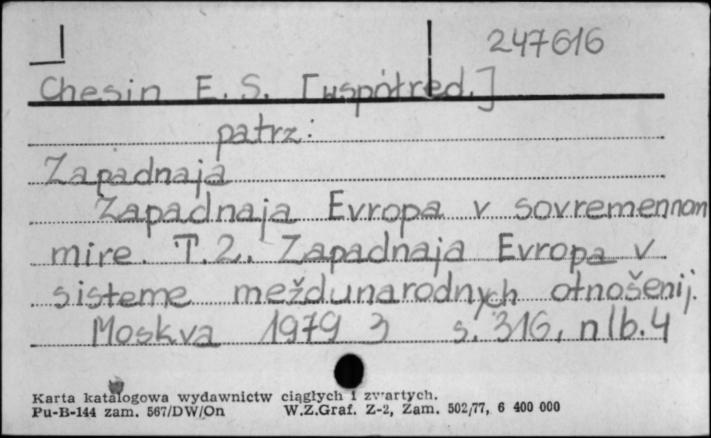 247616
Chesin E. S. [współred.]
patrz:
Zapadnaja
Zapadnaja Evropa v sovremennom
mire. T.2. Zapadnaja Evropa v
sisteme meždunarodnych otnošenij.
Moskva 1979 s. 316, nlb. 4
Karta katalogowa wydawnictw ciągłych i zwartych.
Pu-B-144 zam. 567/DW/On W.Z.Graf. Z-2, Zam. 502/77, 6 400 000